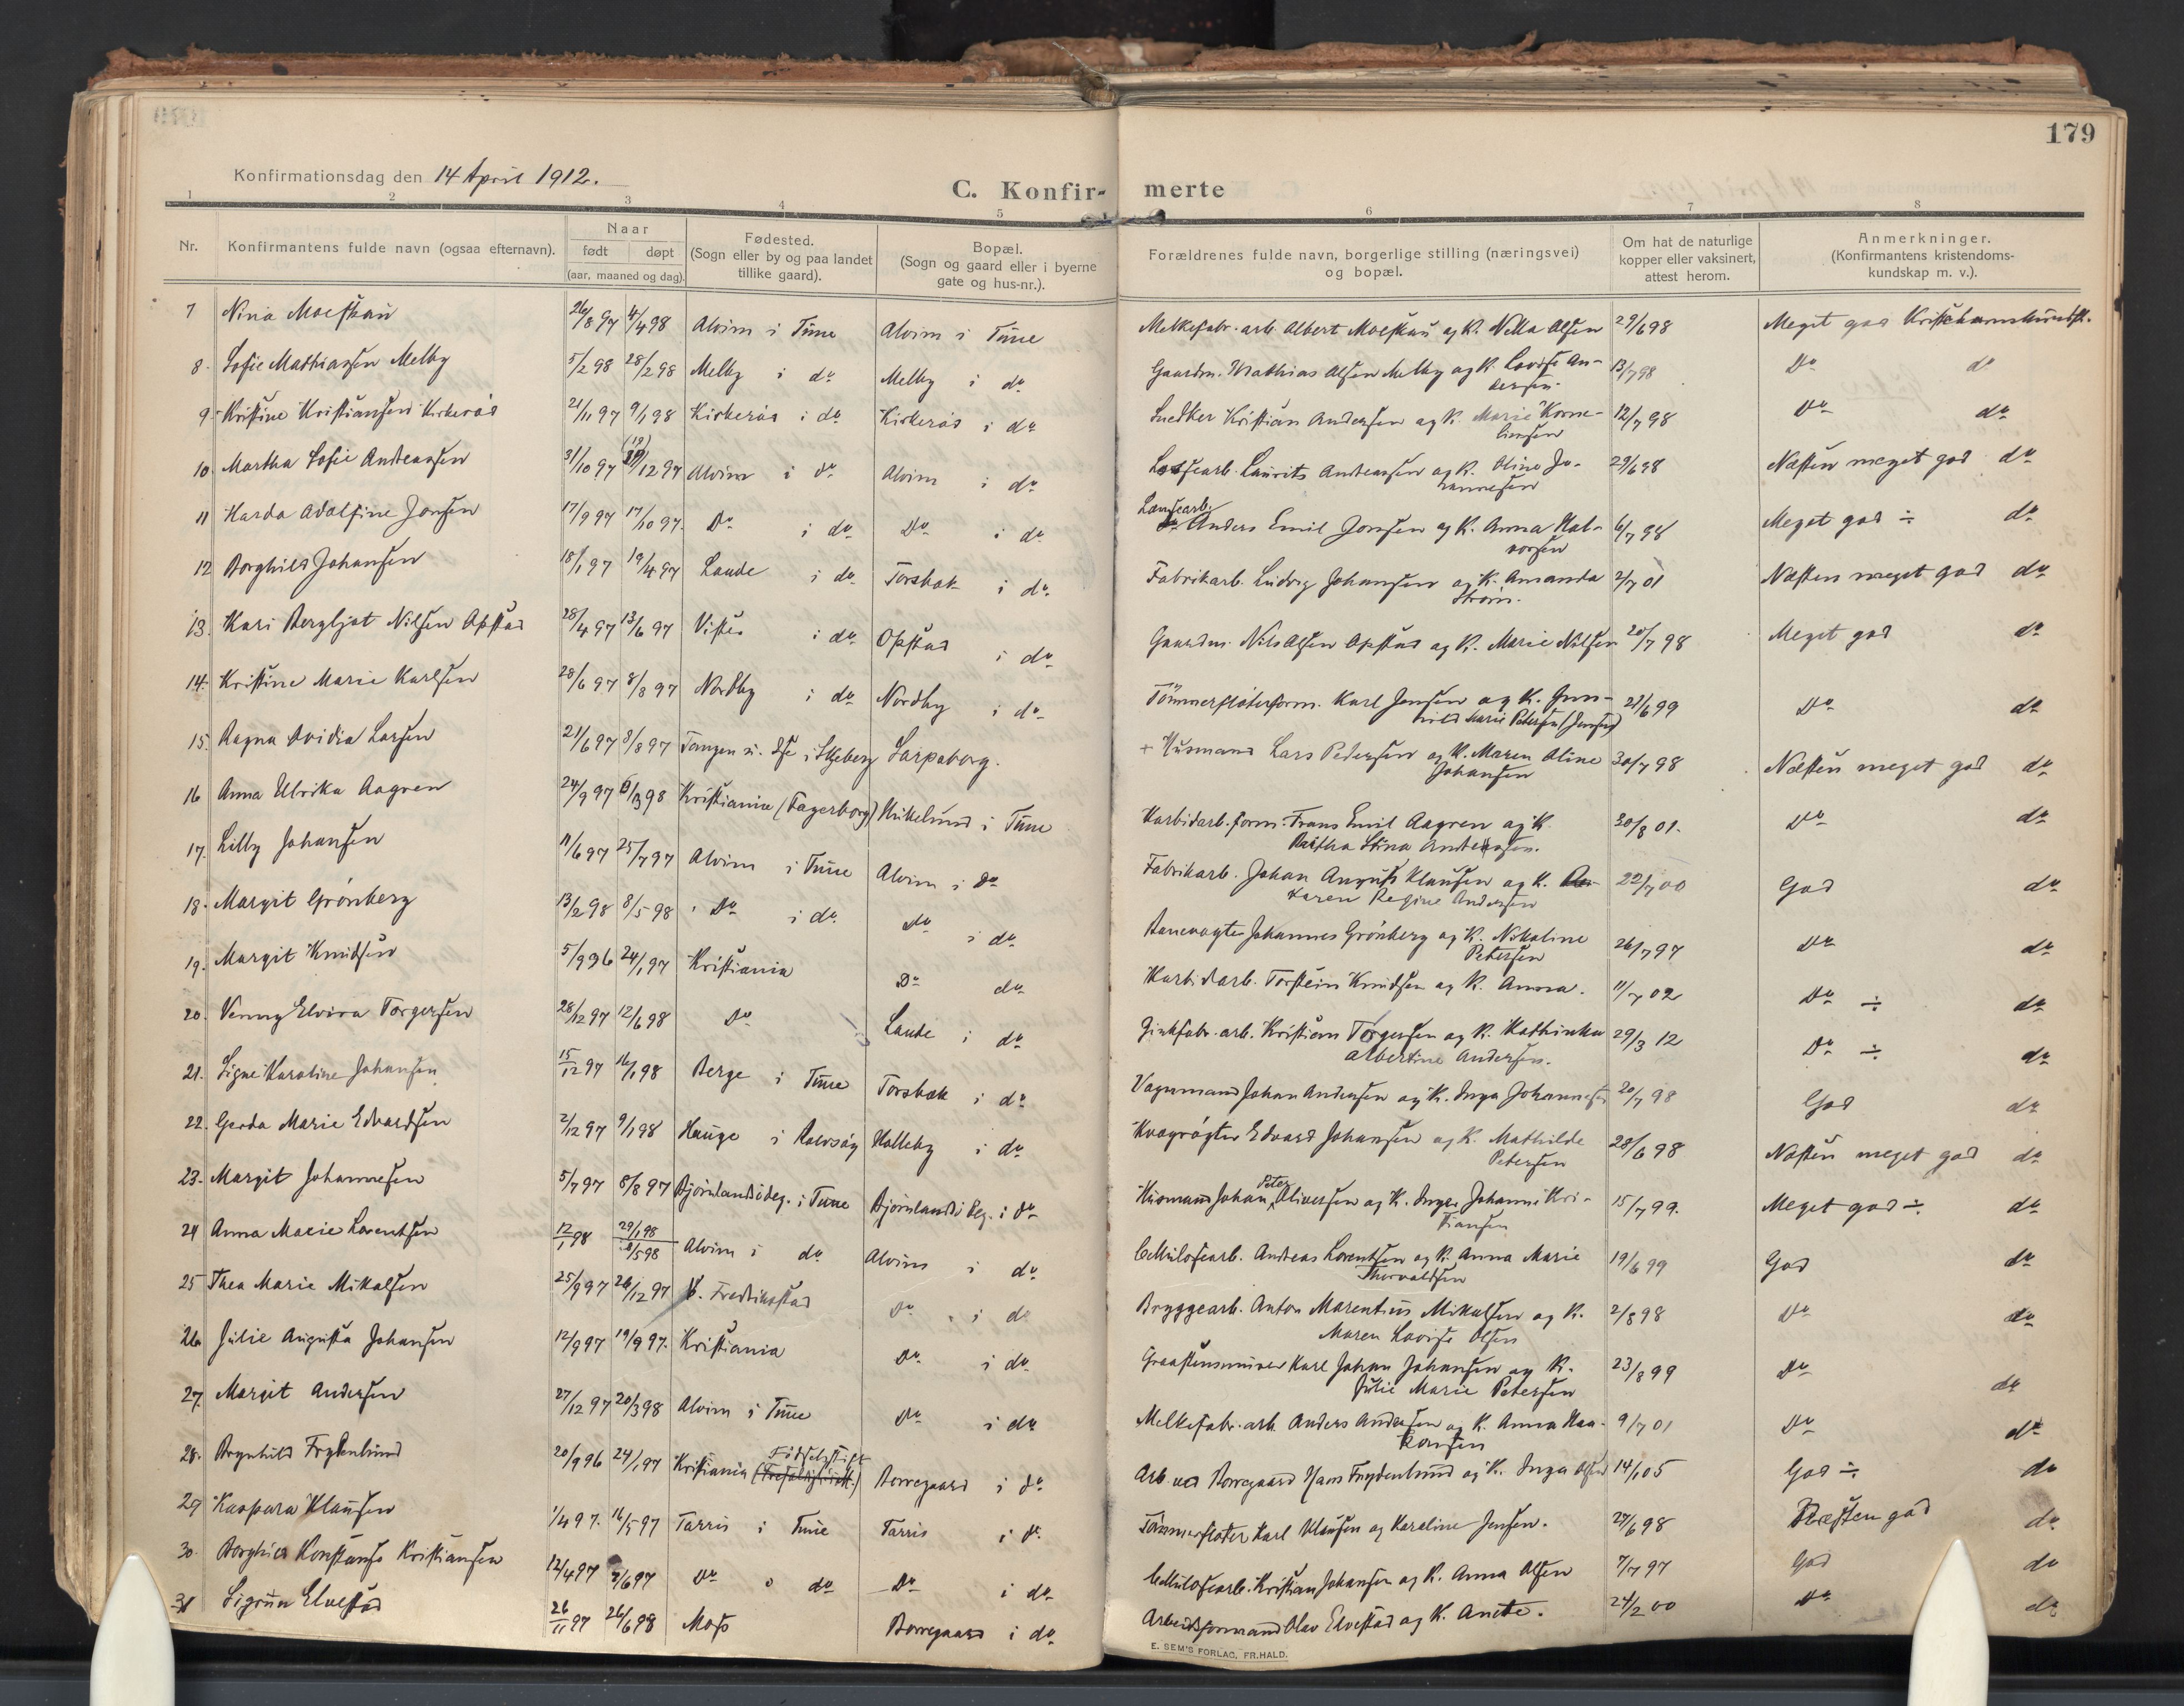 179
Konfirmationsdag den 14 April 1912.
C. Konfir- merte
1 2 3 4 5 6 7 8
Nr. Konfirmantens fulde navn (ogsaa efternavn). Naar født døpt (aar, maaned og dag). Fødested. (Sogn eller by og paa landet tillike gaard). Bopæl. (Sogn og gaard eller i byerne gate og hus-nr.). Forældrenes fulde navn, borgerlige stilling (næringsvei) og bopæl. Om hat de naturlige kopper eller vaksinert, attest herom. Anmerkninger. (Konfirmantens kristendoms- kundskap m. v.).
7 Nina Moeskau 26/8 97 4/4 98 Alvim i Tune Alvim i Tune Melkefabr. arb. Albert Moeskau og K. Nella Olsen 29/6 98 Meget god Kristendomskundsk.
8. Sofie Mathiassen Melby 5/2 98 28/2 98 Melby i do Melby i do Gaardm. Mathias Olsen Melby og K. Lovise Andersen. 13/7 98 Do do
9. Kristine Kristiansen Kirkerød 21/11 97 9/1 98 Kirkerød i do Kirkerød i do Snedker Kristian Andersen og K. Marie Korneliussen 12/7 98 Do do
10. Martha Sofie Andreassen 31/10 97 (19) /12 97 Alvim i do Alvim i do Lossearb. Laurits Andreassen og K. Oline Johannesen 29/6 98 Næsten meget god do
11 Harda Adolfine Jonsen 17/9 97 17/10 97. Do i do Do i do Anders Emil Jonsen og K. Anna Halvorsen 6/7 98 Meget god ÷ do
12 Borghild Johansen 18/1 97 19/4 97 Lande i do Torsbæk i do. Fabrikarb. Ludvig Johansen og K. Amanda Strøm. 2/7 01 Næsten meget god do
13. Kari Bergljot Nilsen Opstad 28/4 97 13/6 97 Visten i do Opstad i do Gaardm. Nils Olsen Opstad og K. Marie Nilsen 20/7 98 Meget god do
14. Kristine Marie Karlsen 28/6 97 8/8 97 Nordby i do Nordby i do Tømmerfløterform. Karl Jensen og K. Gunhild Marie Petersen (Jensen) 21/6 99 Do do
15. Ragna Ovidia Larsen 21/6 97 8/8 97 Tangen i Skjeberg Sarpsborg. + Husmand Lars Pedersen og K. Maren Oline Johansen 30/7 98 Næsten meget god do
16 Anna Ulrika Aagren 24/9 97 6/3 98 Kristiania (Fagerborg) Mikelund i Tune Karbidarb. form. Frans Emil Aagren og K. Stina Andersen. 30/8 01. Do do
17. Lilly Johansen 11/6 97 25/7 97 Alvim i Tune Alvim i do Fabrikarb. Johan August Klausen og K. Karen Regine Andersen 22/7 00 God do
18. Margit Grønberg 13/2 98 8/5 98 Do i do. Do i do Banevogter Johannes Grønberg og K. Nikoline Petersen 26/7 97 Do do
19. Margit Knudsen 5/9 96 24/1 97 Kristiania Do do Karbidarb. Torstein Knudsen og K. Anna. 11/7 02 Do ÷ do
20. Venny Elvira Torgersen 28/12 97 12/6 98 Do Lande i do Zinkfabr. arb. Kristian Torgersen og K. Kathinka Albertine Andersen. 29/3 12 Do ÷ do
21. Signe Karoline Johansen 15/12 97 16/1 98 Berge i Tune Torsbæk i do Vognmand Johan Andersen og K. Inga Johannesen 20/7 98 God do
22. Gerda Marie Edvardsen 2/12 97 9/1 98 Hauge i Rolvsøy Halleby i do Kvægrøgter Edvard Johansen og K. Mathilde Petersen 28/6 98 Næsten meget god do
23. Margit Johannesen 5/7 97 8/8 97 Bjørnlandsødeg. i Tune Bjørnlandsødeg. i do Husmand Johan Peter Oliversen og K. Inger Johanne Kristiansen 15/7 99. Meget god ÷ do
24 Anna Marie Lorentsen 12/1 98 29/1 98 8/5 98 Alvim i do Alvim i do Cellulosearb. Andreas Lorentsen og K. Anna Marie Thorvaldsen 19/6 99 God do
25 Thea Marie Mikalsen 25/9 97 26/12 97 V. Fredrikstad Do i do Bryggearb. Anton Marentius Mikalsen og K. Maren Lovise Olsen 2/8 98 Do do
26. Julie Augusta Johansen 12/9 97 19/9 97. Kristiania Do i do Graastensmurer Karl Johan Johansen og K. Julie Marie Petersen 23/8 99 Do do
27. Margit Andersen 27/12 97 20/3 98 Alvim i Tune Do i do Melkefabr. arb. Anders Andersen og K. Anna Haakonsen 9/7 01 Do do
28. Brynhild Frydenlund 20/9 96 24/1 97 Kristiania Fødselsstift. Borregaard i do Arb. ved Borregaard Hans Frydenlund og K. Inga Olsen 14/1 05 God ÷ do
29 Kaspara Klausen 1/4 97. 16/5 97 Tarris i Tune Tarris i do. Tømmerfløter Karl Klausen og Karoline Jensen. 27/6 98 Næsten god do
30. Borghild Konstanse Kristiansen 12/4 97 7/6 97 Do do Do i do Cellulosearb. Kristian Johansen og K. Anna Olsen 7/7 97 God do
31 Sigrun Elvestad 26/11 97 26/6 98 Moss Borregaard i do Arbeidsformand Olav Elvestad og K. Anette. 24/2 00 Do do
E. SEM'S FORLAG, FR.HALD.